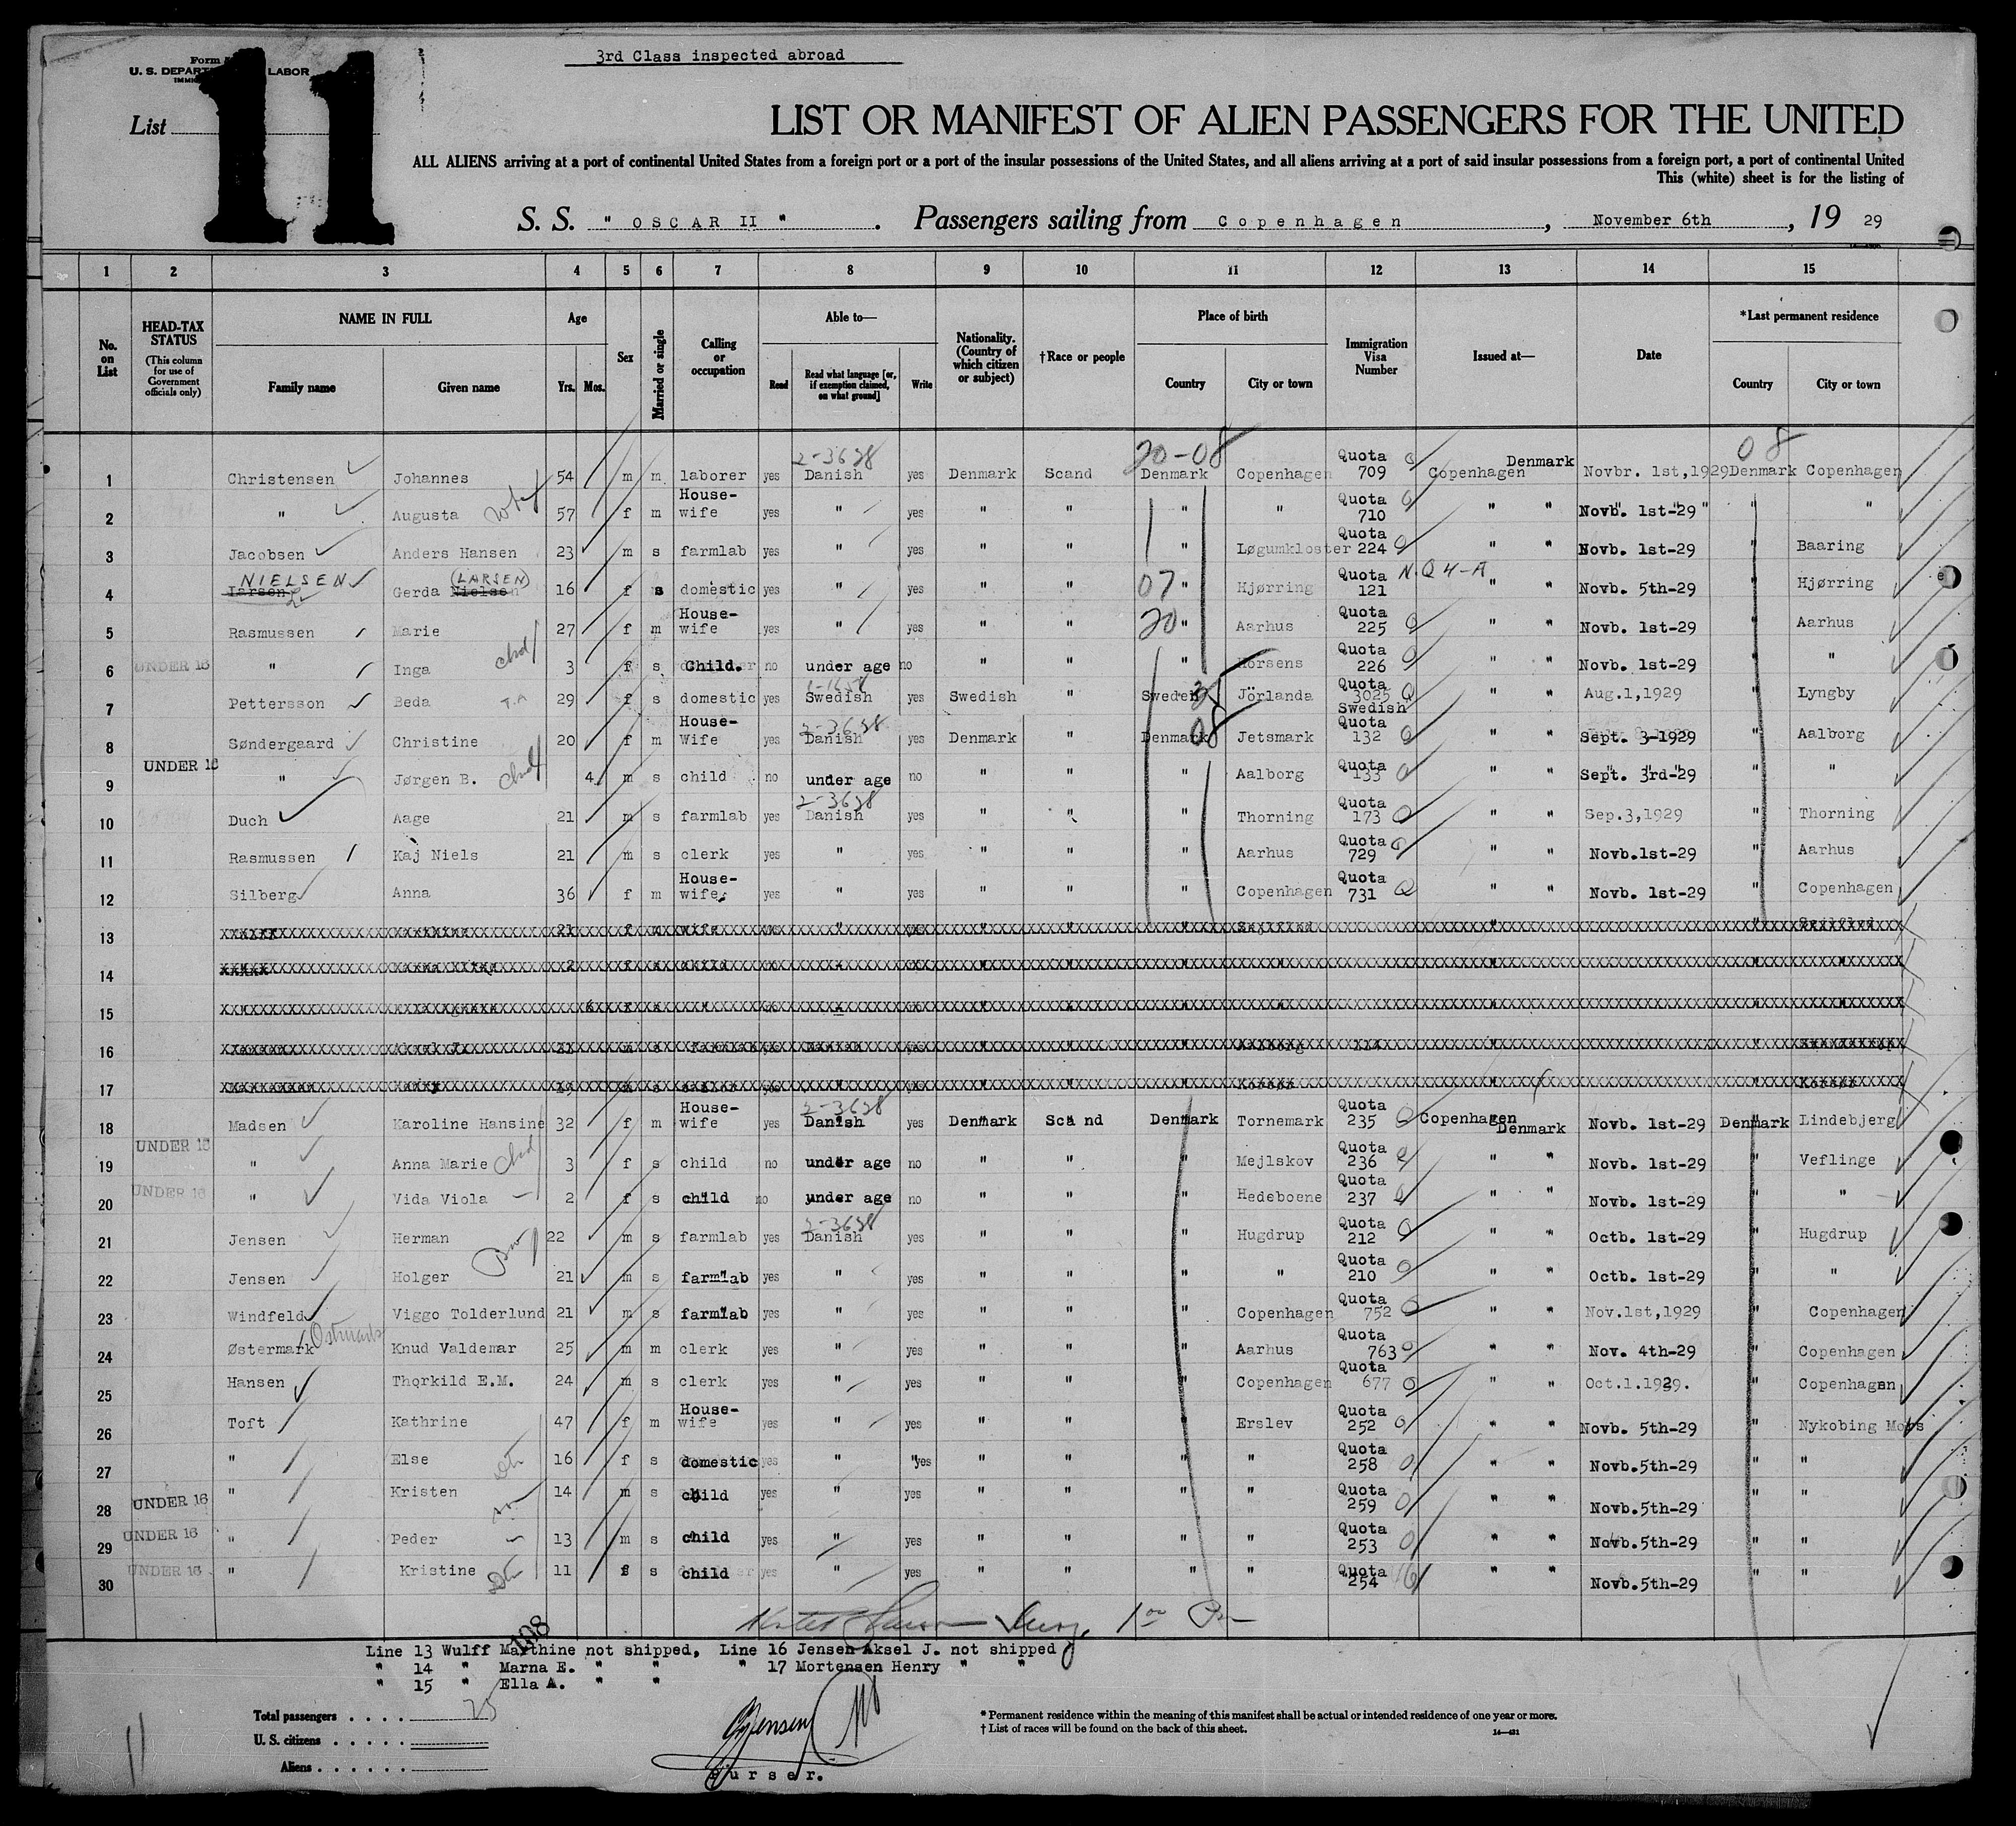 3rd Class inspected abroad
Form
U. S. DEPART LABOR
List
11
LIST OR MANIFEST OF ALIEN PASSENGERS FOR THE UNITED
ALL ALIENS arriving at a port of continental United States from a foreign port or a port of the insular possessions of the United States, and all aliens arriving at a port of said insular possessions from a foreign port, a port of continental United
This (white) sheet is for the listing of
S. S. " OSCAR II " . Passengers sailing from Copenhagen , November 6th , 19 29
1 2 3 4 5 6 7 8 9 10 11 12 13 14 15
No. on List HEAD-TAX STATUS (This column for use of Government officials only) NAME IN FULL Family name Given name Age Yrs. Mos. Sex Married or single Calling or occupation Able to— Read Read what language [or, if exemption claimed, on what ground] Write Nationality. (Country of which citizen or subject) †Race or people Place of birth Country City or town Immigration Visa Number Issued at— Date *Last permanent residence Country City or town
2-3628 20-08 08
1 Christensen Johannes 54 m m laborer yes Danish yes Denmark Scand Denmark Copenhagen Quota 709 Copenhagen Denmark Novbr. 1st,1929 Denmark Copenhagen
2 " Augusta 57 f m House-wife yes " yes " " " " Quota 710 " " Novb. 1st-29 " "
3 Jacobsen Anders Hansen 23 m s farmlab yes " yes " " " Løgumkloster Quota 224 " " Novb. 1st-29 " Baaring
4 NIELSEN Larsen Gerda (LARSEN) Nielsen 16 f s domestic yes " yes " " 07 " Hjørring Quota 121 N.Q 4-A " " Novb. 5th-29 " Hjørring
5 Rasmussen Marie 27 f m House-wife yes " yes " " 20 " Aarhus Quota 225 " " Novb. 1st-29 " Aarhus
6 UNDER 16 " Inga chd 3 f s Child. no under age no " " " Horsens Quota 226 " " Novb. 1st-29 " "
7 Pettersson Beda 29 f s domestic yes Swedish yes Swedish " Sweden Jörlanda Quota 3025 Swedish " " Aug.1,1929 " Lyngby
8 Søndergaard Christine 20 f m House-Wife yes 2-3628 Danish yes Denmark " Denmark 08 Jetsmark Quota 132 " " Sept. 3-1929 " Aalborg
9 UNDER 16 " Jørgen B. chd 4 m s child no under age no " " " Aalborg Quota 133 " " Sept. 3rd-29 " "
10 Duch Aage 21 m s farmlab yes 2-3628 Danish yes " " " Thorning Quota 173 " " Sep.3,1929 " Thorning
11 Rasmussen Kaj Niels 21 m s clerk yes " yes " " " Aarhus Quota 729 " " Novb.1st-29 " Aarhus
12 Silberg Anna 36 f m House-wife yes " yes " " " Copenhagen Quota 731 " " Novb. 1st-29 " Copenhagen
13
14
15
16
17
18 Madsen Karoline Hansine 32 f m House-wife yes 2-3628 Danish yes Denmark Scand Denmark Tornemark Quota 235 Copenhagen Denmark Novb. 1st-29 Denmark Lindebjerg
19 UNDER 16 " Anna Marie chd 3 f s child no under age no " " " Mejlskov Quota 236 " " Novb. 1st-29 " Veflinge
20 UNDER 16 " Vida Viola 2 f s child no under age no " " " Hedeboene Quota 237 " " Novb. 1st-29 " "
21 Jensen Herman 22 m s farmlab yes 2-3628 Danish yes " " " Hugdrup Quota 212 " " Octb. 1st-29 " Hugdrup
22 Jensen Holger 21 m s farmlab yes " yes " " " " Quota 210 " " Octb. 1st-29 " "
23 Windfeld Viggo Tolderlund 21 m s farmlab yes " yes " " " Copenhagen Quota 752 " " Nov.1st,1929 " Copenhagen
24 Østermark Ostmark Knud Valdemar 25 m m clerk yes " yes " " " Aarhus Quota 763 " " Nov. 4th-29 " Copenhagen
25 Hansen Thorkild E.M. 24 m s clerk yes " yes " " " Copenhagen Quota 677 " " Oct.1.1929. " Copenhagen
26 Toft Kathrine 47 f m House-wife yes " yes " " " Erslev Quota 252 " " Novb. 5th-29 " Nykobing Mors
27 " Else 16 f s domestic yes " yes " " " " Quota 258 " " Novb.5th-29 " "
28 UNDER 16 " Kristen 14 m s child yes " yes " " " " Quota 259 " " Novb.5th-29 " "
29 UNDER 16 " Peder 13 m s child yes " yes " " " " Quota 253 " " Novb.5th-29 " "
30 UNDER 16 " Kristine 11 f s child yes " yes " " " " Quota 254 " " Novb.5th-29 " "
108
Line 13 Wulff Marthine not shipped, Line 16 Jensen Aksel J. not shipped
" 14 " Marna E. " " " 17 Mortensen Henry " "
" 15 " Ella A. " "
Total passengers . . . . 25
U. S. citizens . . . . .
Aliens . . . . . .
Purser.
* Permanent residence within the meaning of this manifest shall be actual or intended residence of one year or more.
† List of races will be found on the back of this sheet.